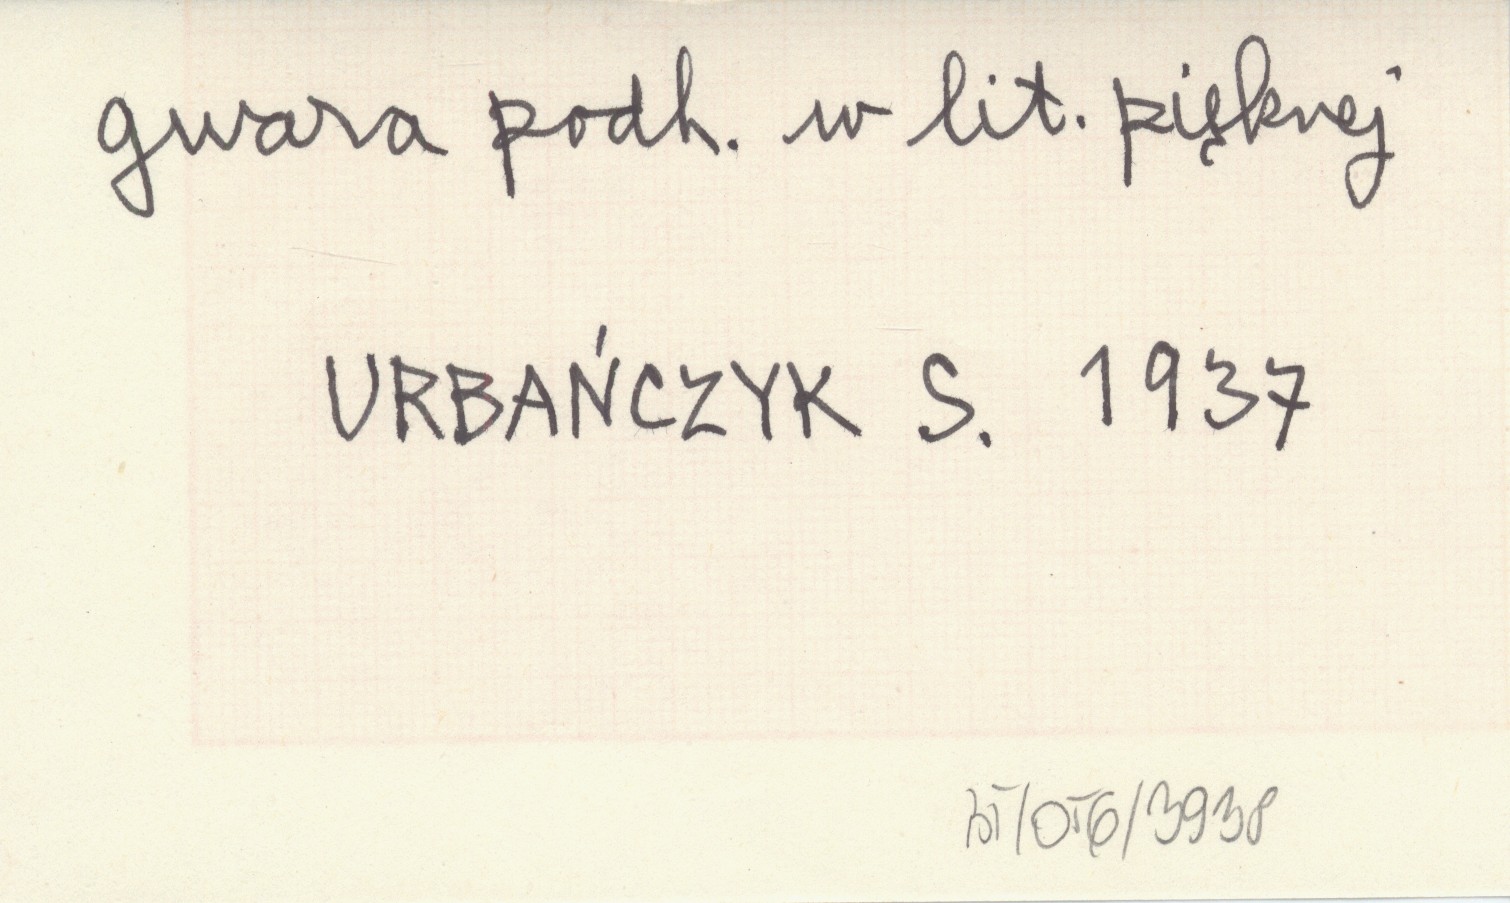 gwara podh. w lit. pięknej
URBAŃCZYK S. 1937
/3938